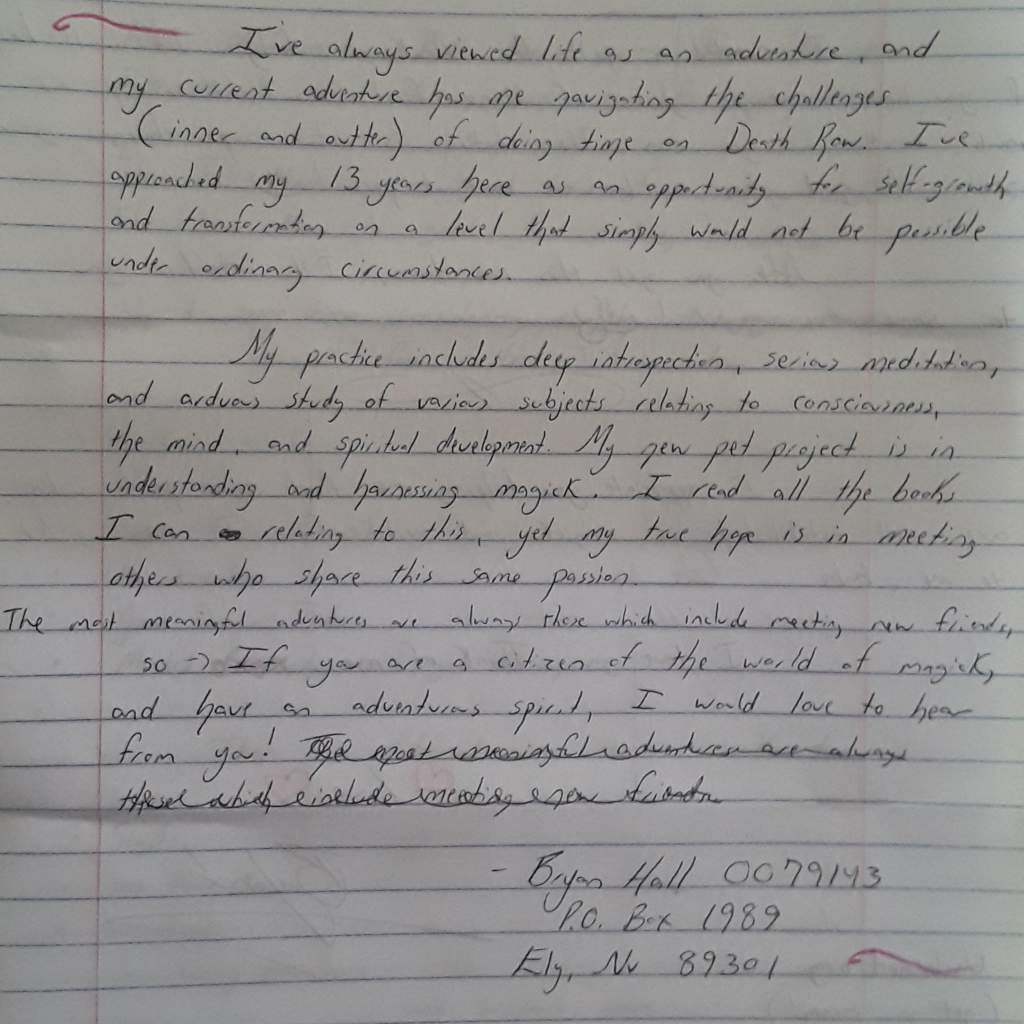 I've always viewed life as an adventure, and
my current adventure has me navigating the challenges
(inner and outter) of doing time on Death Row. I've
approached my 13 years here as an opportunity for self-growth
and transformation on a level that simply would not be possible
under ordinary circumstances.
My practice includes deep introspection, serious meditation,
and arduous study of various subjects relating to consciousness,
the mind, and spiritual development. My new pet project is in
understanding and harnessing magick. I read all the books
I can relating to this, yet my true hope is in meeting
others who share this same passion.
The most meaningful adventures are always those which include meeting new friends,
so → If you are a citizen of the world of magick,
and have an adventurous spirit, I would love to hear
from you! The most meaningful adventures are always
those which include meeting new friends
- Bryan Hall 0079143
P.O. Box 1989
Ely, Nv 89301